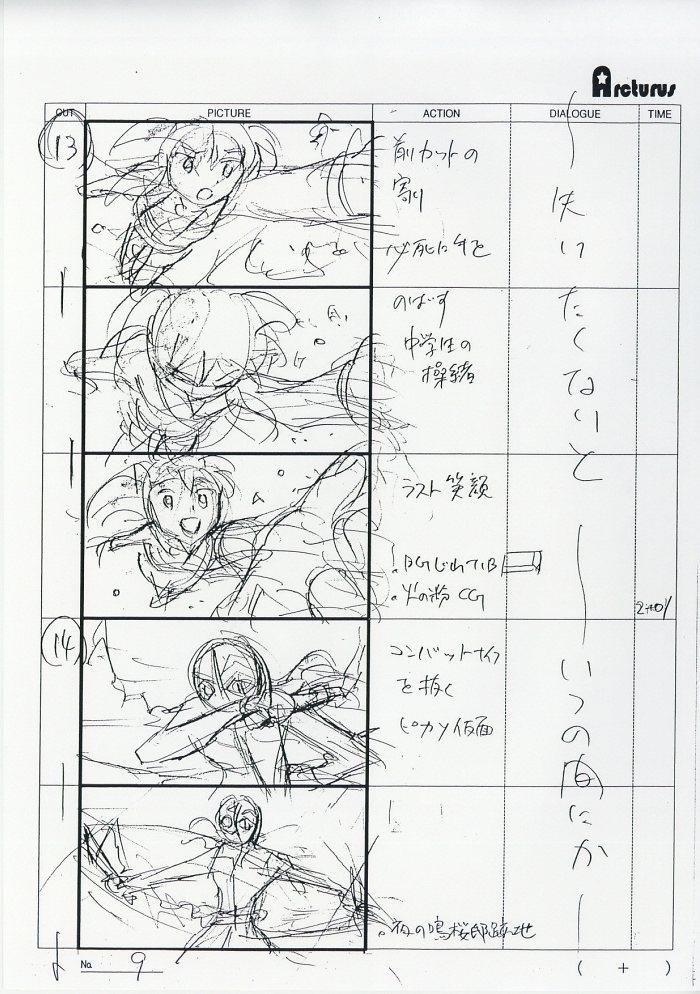 Arcturus
CUT PICTURE ACTION DIALOGUE TIME
13
前カットの
割り
必死に手を
のばす
中学生の
操緒
ラスト笑顔
火の粉CG
失いたくないと
14
コンバットナイフ
を抜く
ピカソ仮面
いつの間にか
夜の鳴桜邸跡地
No 9
( + )